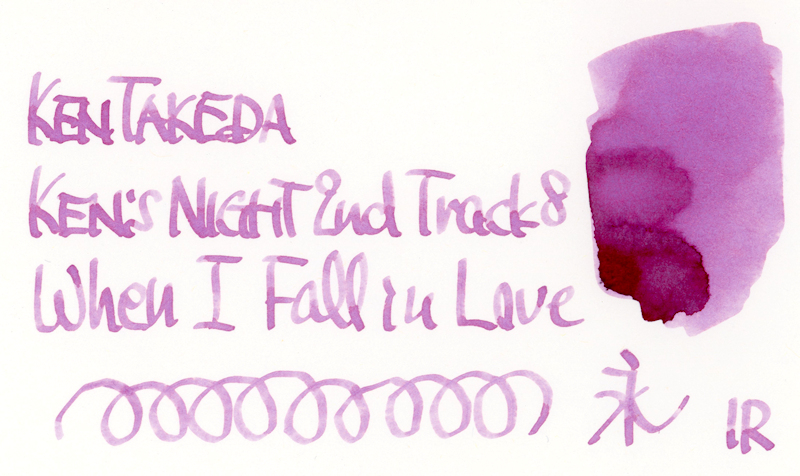 KEN TAKEDA
KEN'S NIGHT 2nd Track 8
When I Fall in Love
永 IR